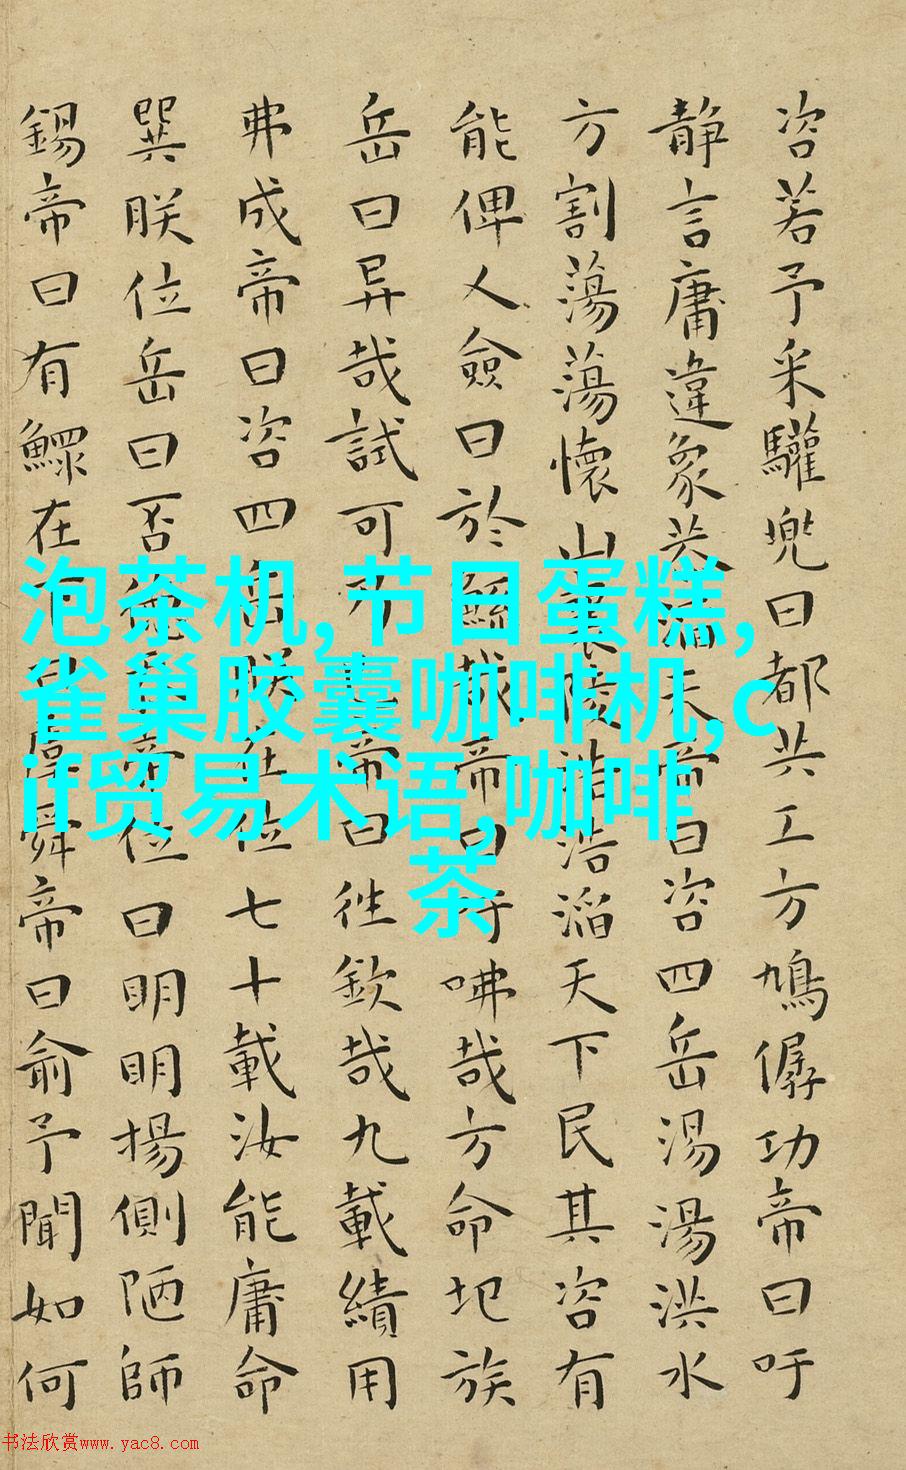 咨若予采驩兜曰都共工方鳩僝功帝曰吁
静言庸違象恭滔天帝曰咨四岳湯湯洪水
方割蕩蕩懷山襄陵浩浩滔天下民其咨有
能俾乂僉曰於鯀哉帝曰吁咈哉方命圮族
岳曰异哉試可乃帝曰往欽哉九載績用
弗成帝曰咨四岳朕在位七十載汝能庸命
巽朕位岳曰否德帝位曰明明揚側陋師
錫帝曰有鰥在下曰虞舜帝曰俞予聞如何
泡茶机,节目蛋糕,
雀巢胶囊咖啡机,c
if贸易术语,咖啡
茶
书法欣赏www.yac8.com